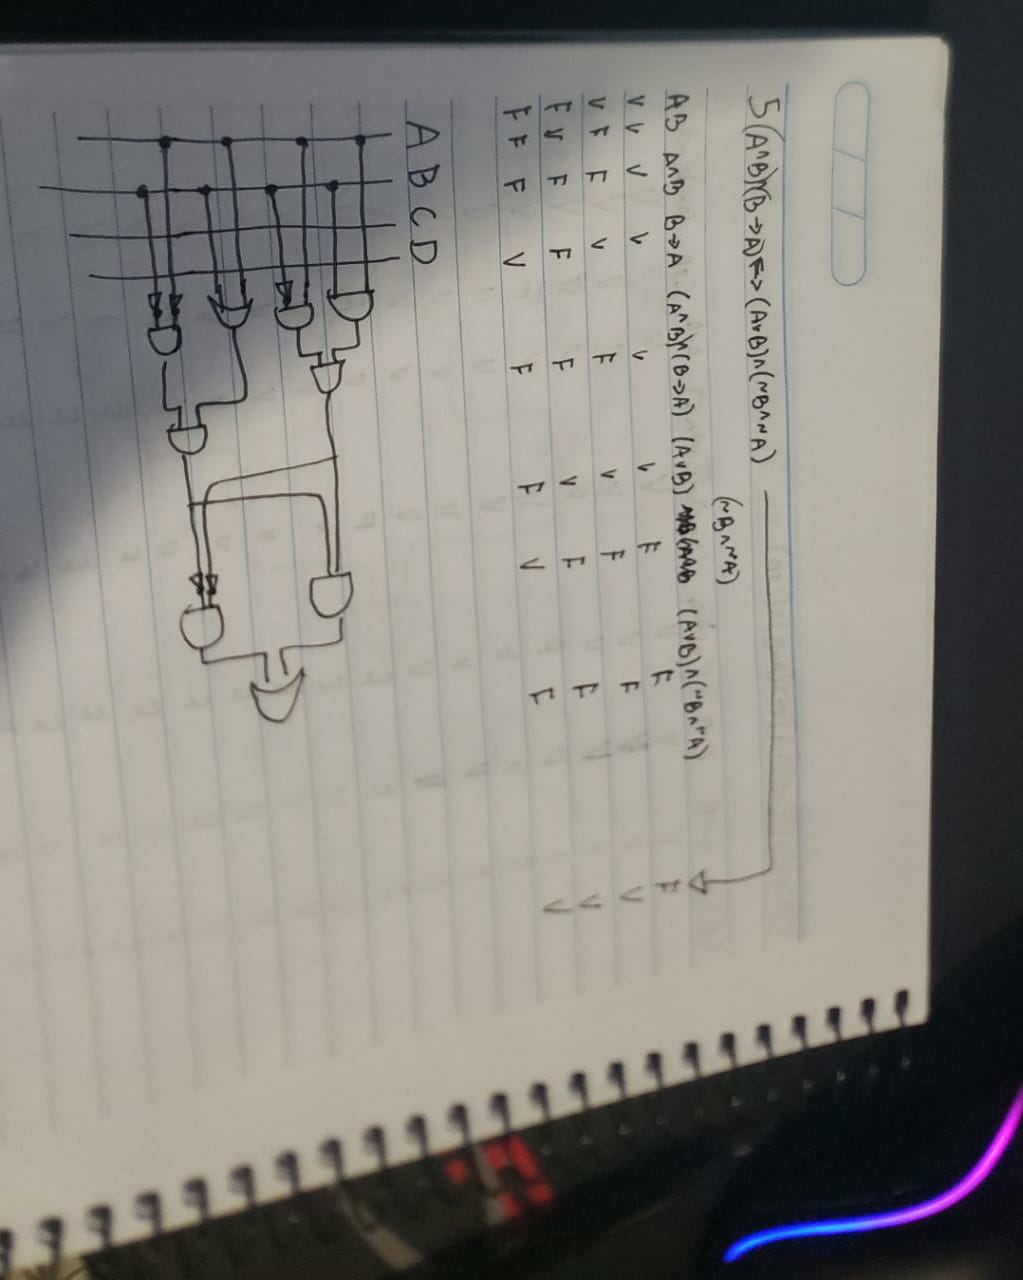 / /
5(A^B)^(B→A)↔(A∨B)^(~B^~A)
(~B^~A)
AB A^B B→A (A^B)^(B→A) (A∨B) (A∨B)^(~B^~A)
V V V V V V F F F
V F F V F V F F V
F V F F F V F F V
F F F V F F V F V
A B C D